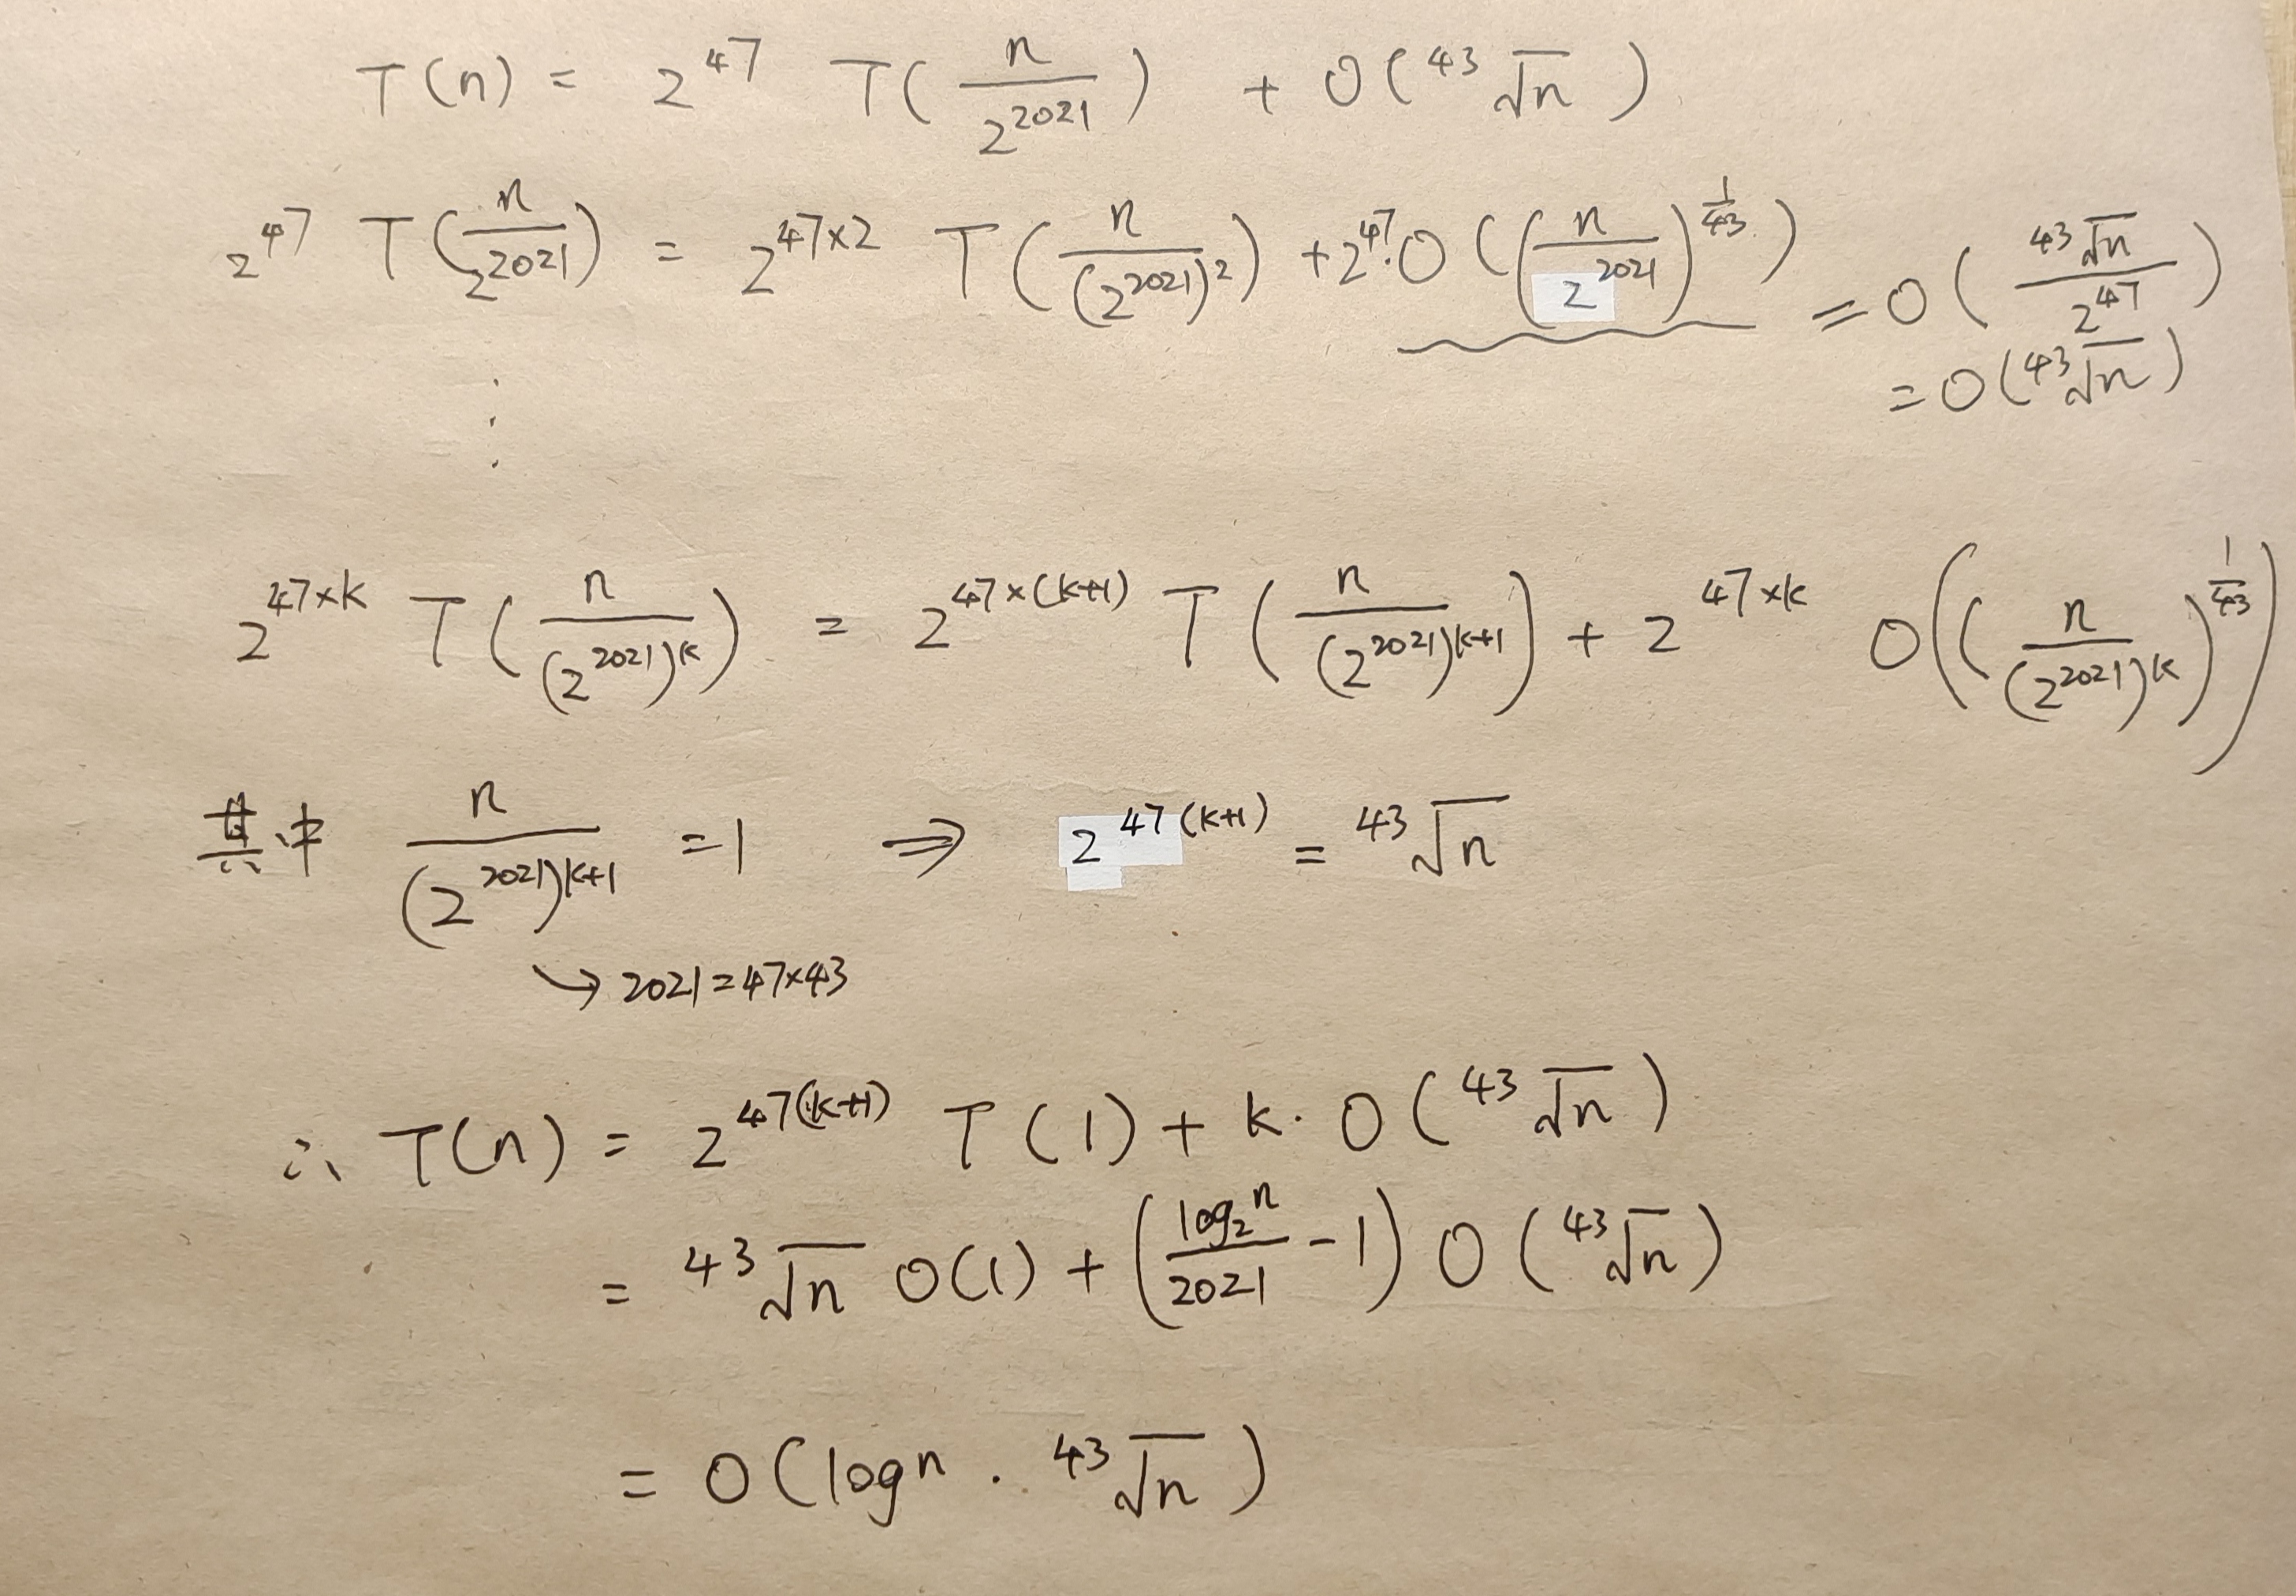 T(n) = 2^47 T(n/2^2021) + O(43√n)
2^47 T(n/2^2021) = 2^(47×2) T(n/(2^2021)^2) + 2^47·O((n/2^2021)^(1/43)) = O(43√n/2^47)
= O(43√n)
⋮
2^(47×k) T(n/(2^2021)^k) = 2^(47×(k+1)) T(n/(2^2021)^(k+1)) + 2^(47×k) O((n/(2^2021)^k)^(1/43))
其中 n/(2^2021)^(k+1) = 1 ⇒ 2^(47(k+1)) = 43√n
↳ 2021=47×43
∴ T(n) = 2^(47(k+1)) T(1) + k·O(43√n)
= 43√n O(1) + (log₂n/2021 - 1) O(43√n)
= O(logn · 43√n)